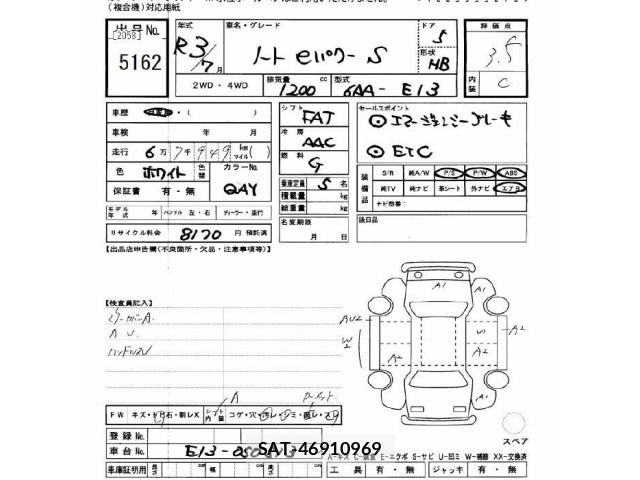 (複合機)対応用紙
出品 No.
[2058]
5162
年式
R3/7月
車名・グレード
ノート eパワー S
ドア
5
形状
HB
評価点
3.5
内装
C
2WD・4WD
排気量
1200 cc
型式
6AA-E13
車歴
・(　)
車検 年 月
走行 6万7千949 km マイル( )
色 ホワイト 色替
カラーNo.
QAY
保証書 有・無
モデル年式 年 ハンドル 左・右 ディーラー・並行
リサイクル料金 8170 円 預託済
シフト
FAT
冷房
AAC
燃料
G
乗車定員 5 名
積載量 kg
総重量 kg
名変期限
月 日
セールスポイント
◎エマージェンシーブレーキ
◎ETC
装備品
S/R 純A/W P/S P/W ABS
純TV 純ナビ 革シート 外ナビ エアB
ナビ型番:
後日品
【出品店申告欄(不良箇所・欠品・注意事項等)】
【検査員記入】
ミラーカバーA.
A.U.
A1
A1
AU2
W2
A2
U1
A2
A2
A
FW キズ・ 石・割レX シート内装 コゲ・穴・
スペア
登録 No.
車台 No.
E13-
SAT-46910969
A-キズ C-腐食 E-エクボ S-サビ U-凹ミ W-補修 XX-交換済
車庫証明用 長さ cm 幅 cm 高さ cm
工具 有・無 ジャッキ 有・無